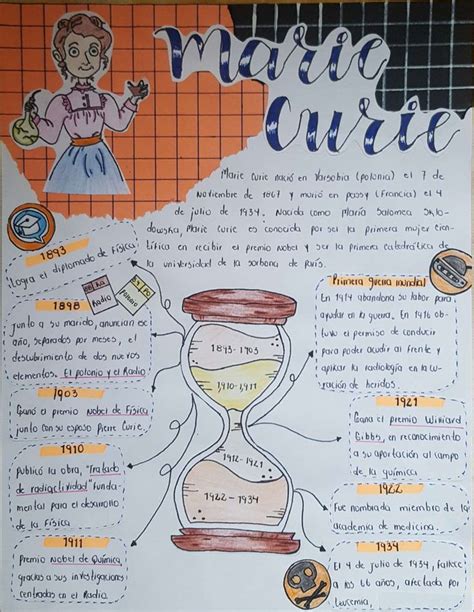 Marie
Curie
Marie Curie nació en Varsobia (Polonia) el 7 de
Noviembre de 1867 y murió en passy (Francia) el 4
de julio de 1934. Nacida como María Salomea Sklo-
dowska, Marie Curie es conocida por ser la primera mujer cien-
tífica en recibir el premio nobel y ser la primera catedrática de
la universidad de la sorbona de parís.
1893
Logra el diplomado de física
1898
junto a su marido, anuncian ese
año, separados por meses, el
descubrimiento de dos nuevos
elementos. El polonio y el Radio
Radio
Polonio
1903
Ganó el premio Nobel de Física
junto con su esposo Pierre Curie.
1910
publicó la obra, "Tratado
de radiactividad" funda-
mental para el desarrollo
de la física
1911
Premio Nobel de Química
gracias a sus investigaciones
centradas en el Radio.
1893-1903
1910-1911
1912-1921
1922-1934
Primera guerra mundial
En 1914 abandona su labor para
ayudar en la guerra. En 1916 ob-
tuvo el permiso de conducir
para poder acudir al frente y
aplicar la radiología en la cu-
ración de heridos.
1921
Gana el premio Williard
Gibbs, en reconocimiento
a su aportación al campo
de la química
1922
Fue nombrada miembro de la
academia de medicina.
1934
El 4 de julio de 1934, fallece
a los 66 años, afectada por
Leucemia.